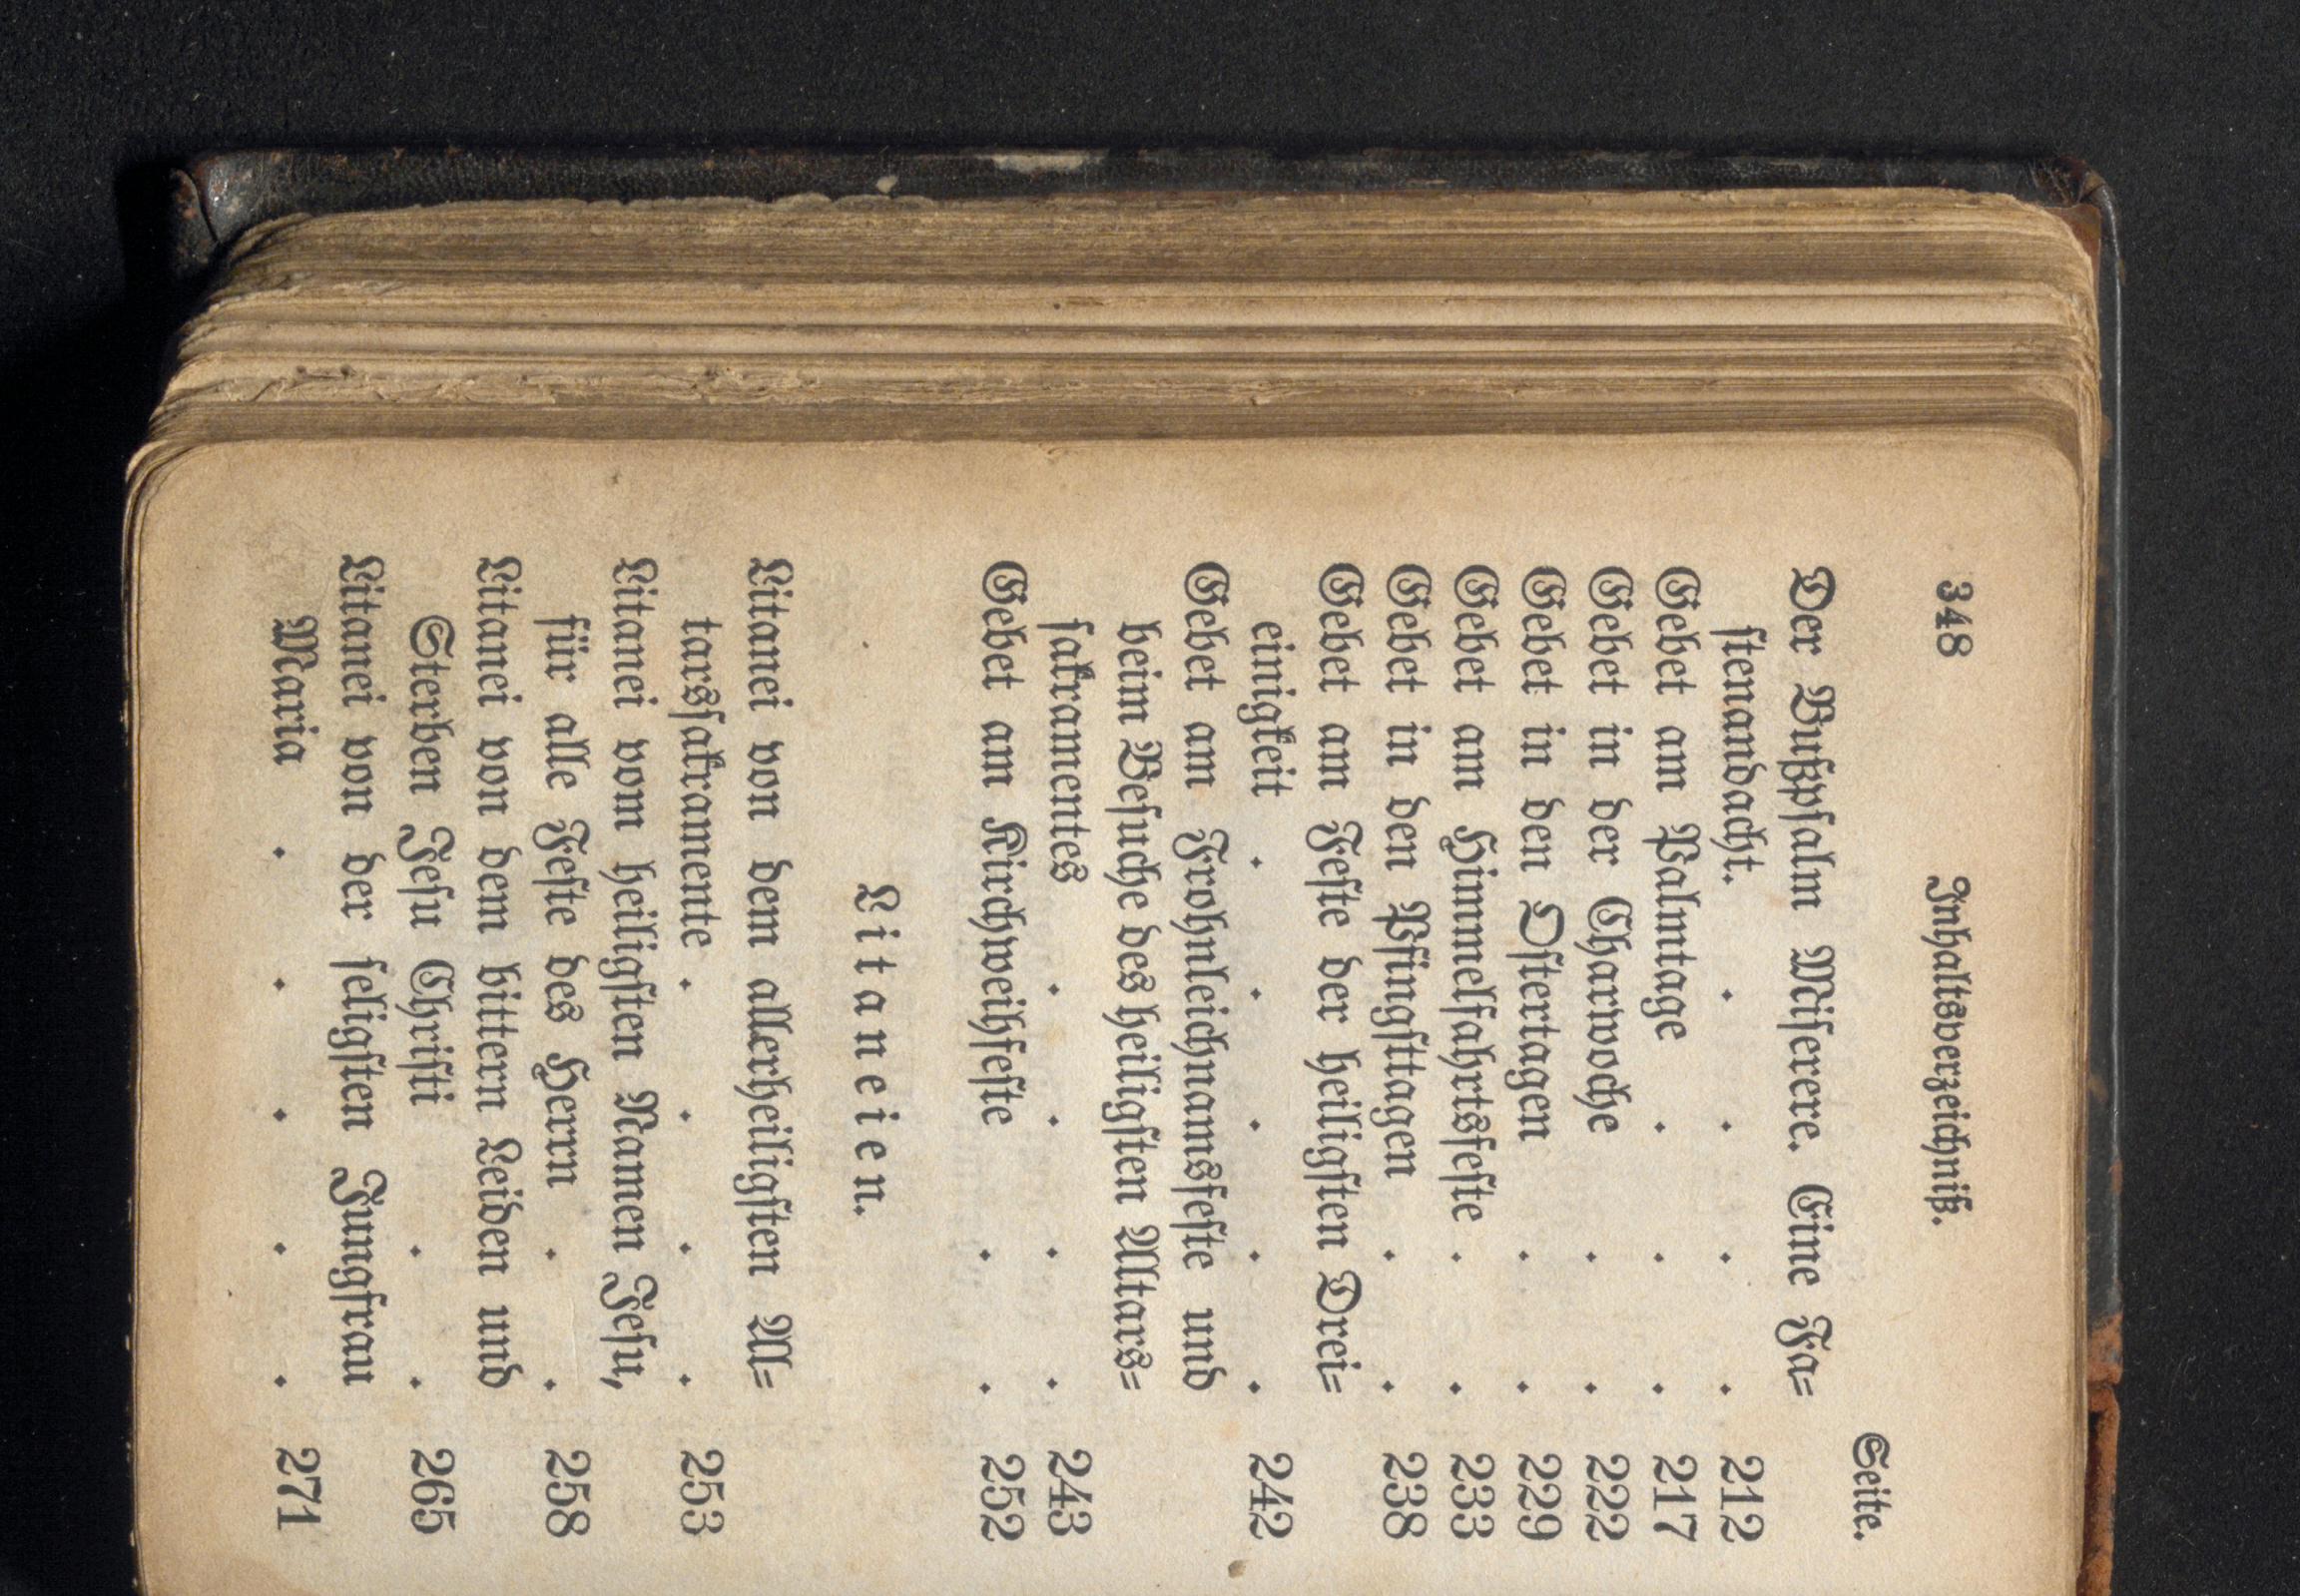 348 Inhaltsverzeichniß.
Seite.
Der Bußpsalm Miserere. Eine Fa=
stenandacht. . . . . 212
Gebet am Palmtage . . . 217
Gebet in der Charwoche . . 222
Gebet in den Ostertagen . . 229
Gebet am Himmelfahrtsfeste . . 233
Gebet in den Pfingsttagen . . 238
Gebet am Feste der heiligsten Drei=
einigkeit . . . . . 242
Gebet am Frohnleichnamsfeste und
beim Besuche des heiligsten Altars=
sakramentes . . . . 243
Gebet am Kirchweihfeste . . 252
Litaneien.
Litanei von dem allerheiligsten Al=
tarssakramente . . . . 253
Litanei vom heiligsten Namen Jesu,
für alle Feste des Herrn . . 258
Litanei von dem bittern Leiden und
Sterben Jesu Christi . . 265
Litanei von der seligsten Jungfrau
Maria . . . . . 271